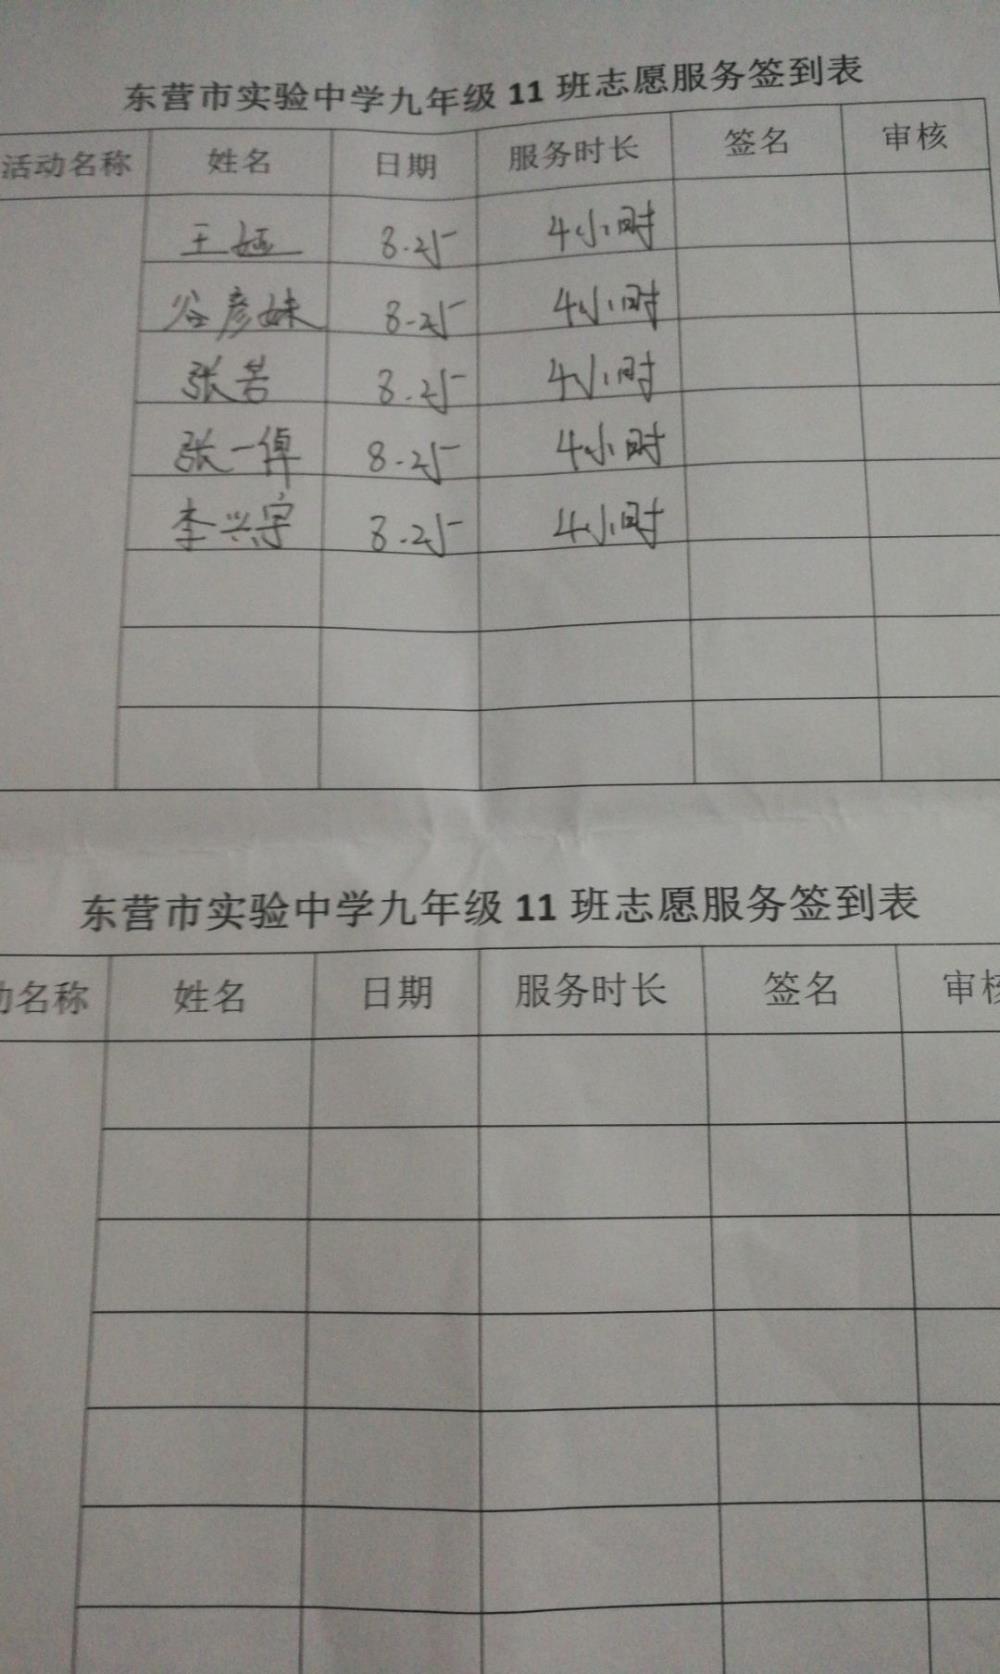 东营市实验中学九年级 11 班志愿服务签到表
活动名称 姓名 日期 服务时长 签名 审核
王娅 8.25 4小时
谷彦妹 8.25 4小时
张芸 8.25 4小时
张一倬 8.25 4小时
李兴宇 8.25 4小时
东营市实验中学九年级 11 班志愿服务签到表
动名称 姓名 日期 服务时长 签名 审核